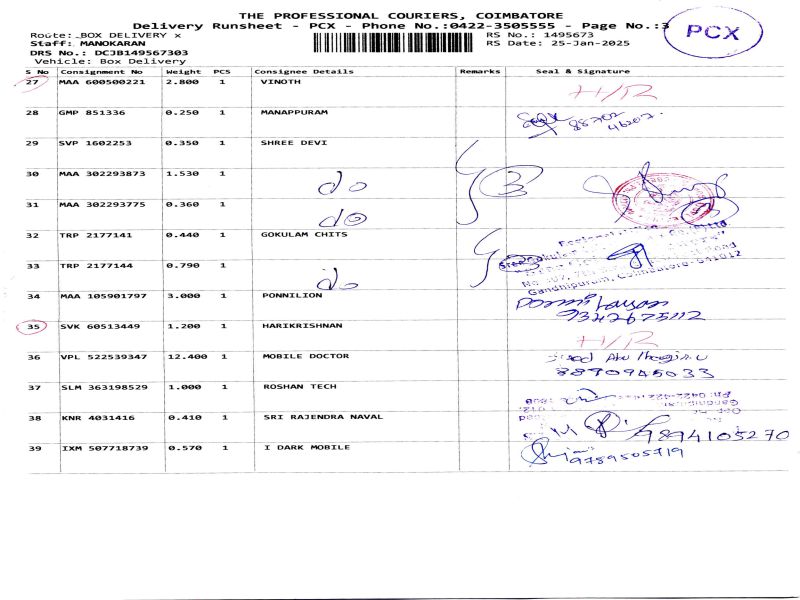 THE PROFESSIONAL COURIERS, COIMBATORE
Delivery Runsheet - PCX - Phone No.:0422-3505555 - Page No.:3
PCX
Route: BOX DELIVERY x
RS No.: 1495673
Staff: MANOKARAN
RS Date: 25-Jan-2025
DRS No.: DCJB149567303
Vehicle: Box Delivery
S No Consignment No Weight PCS Consignee Details Remarks Seal & Signature
27 MAA 600500221 2.800 1 VINOTH H/R
28 GMP 851336 0.250 1 MANAPPURAM
29 SVP 1602253 0.350 1 SHREE DEVI
30 MAA 302293873 1.530 1 do 3
31 MAA 302293775 0.360 1 do
32 TRP 2177141 0.440 1 GOKULAM CHITS
33 TRP 2177144 0.790 1 do
Gandhipuram, Coimbatore-641012
34 MAA 105901797 3.000 1 PONNILION
9342675112
35 SVK 60513449 1.200 1 HARIKRISHNAN H/R
36 VPL 522539347 12.400 1 MOBILE DOCTOR
8890945033
37 SLM 363198529 1.000 1 ROSHAN TECH
38 KNR 4031416 0.410 1 SRI RAJENDRA NAVAL 9894105270
39 IXM 507718739 0.570 1 I DARK MOBILE 9789505719